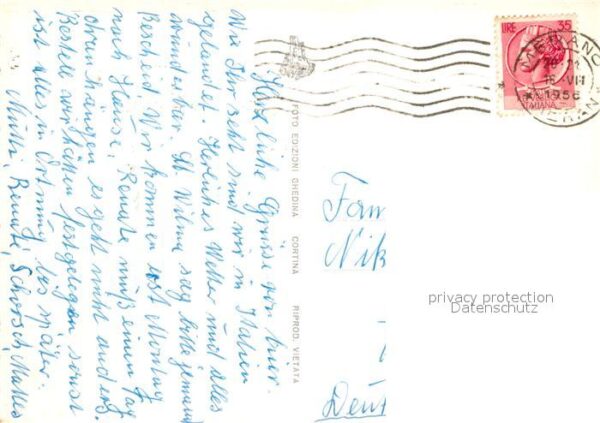 Herzliche Grüsse von hier.
Wie Ihr seht sind wir in Italien
gelandet. Herrliches Wetter und alles
wunderbar. St. Wilma sag bitte jemand
Bescheid Wir kommen erst Montag
nach Hause, Renate muß einen Tag
dranhängen es geht nicht anders.
Bestell wir hätten festgelegen sonst
ist alles in Ordnung bis später.
Mutti, Renate, Schorsch,
FOTO EDIZIONI GHEDINA CORTINA RIPROD. VIETATA
LIRE 35
ITALIANA
MERANO
VIII
1956
MERAN
Fam
Nik
Deut
privacy protection
Datenschutz